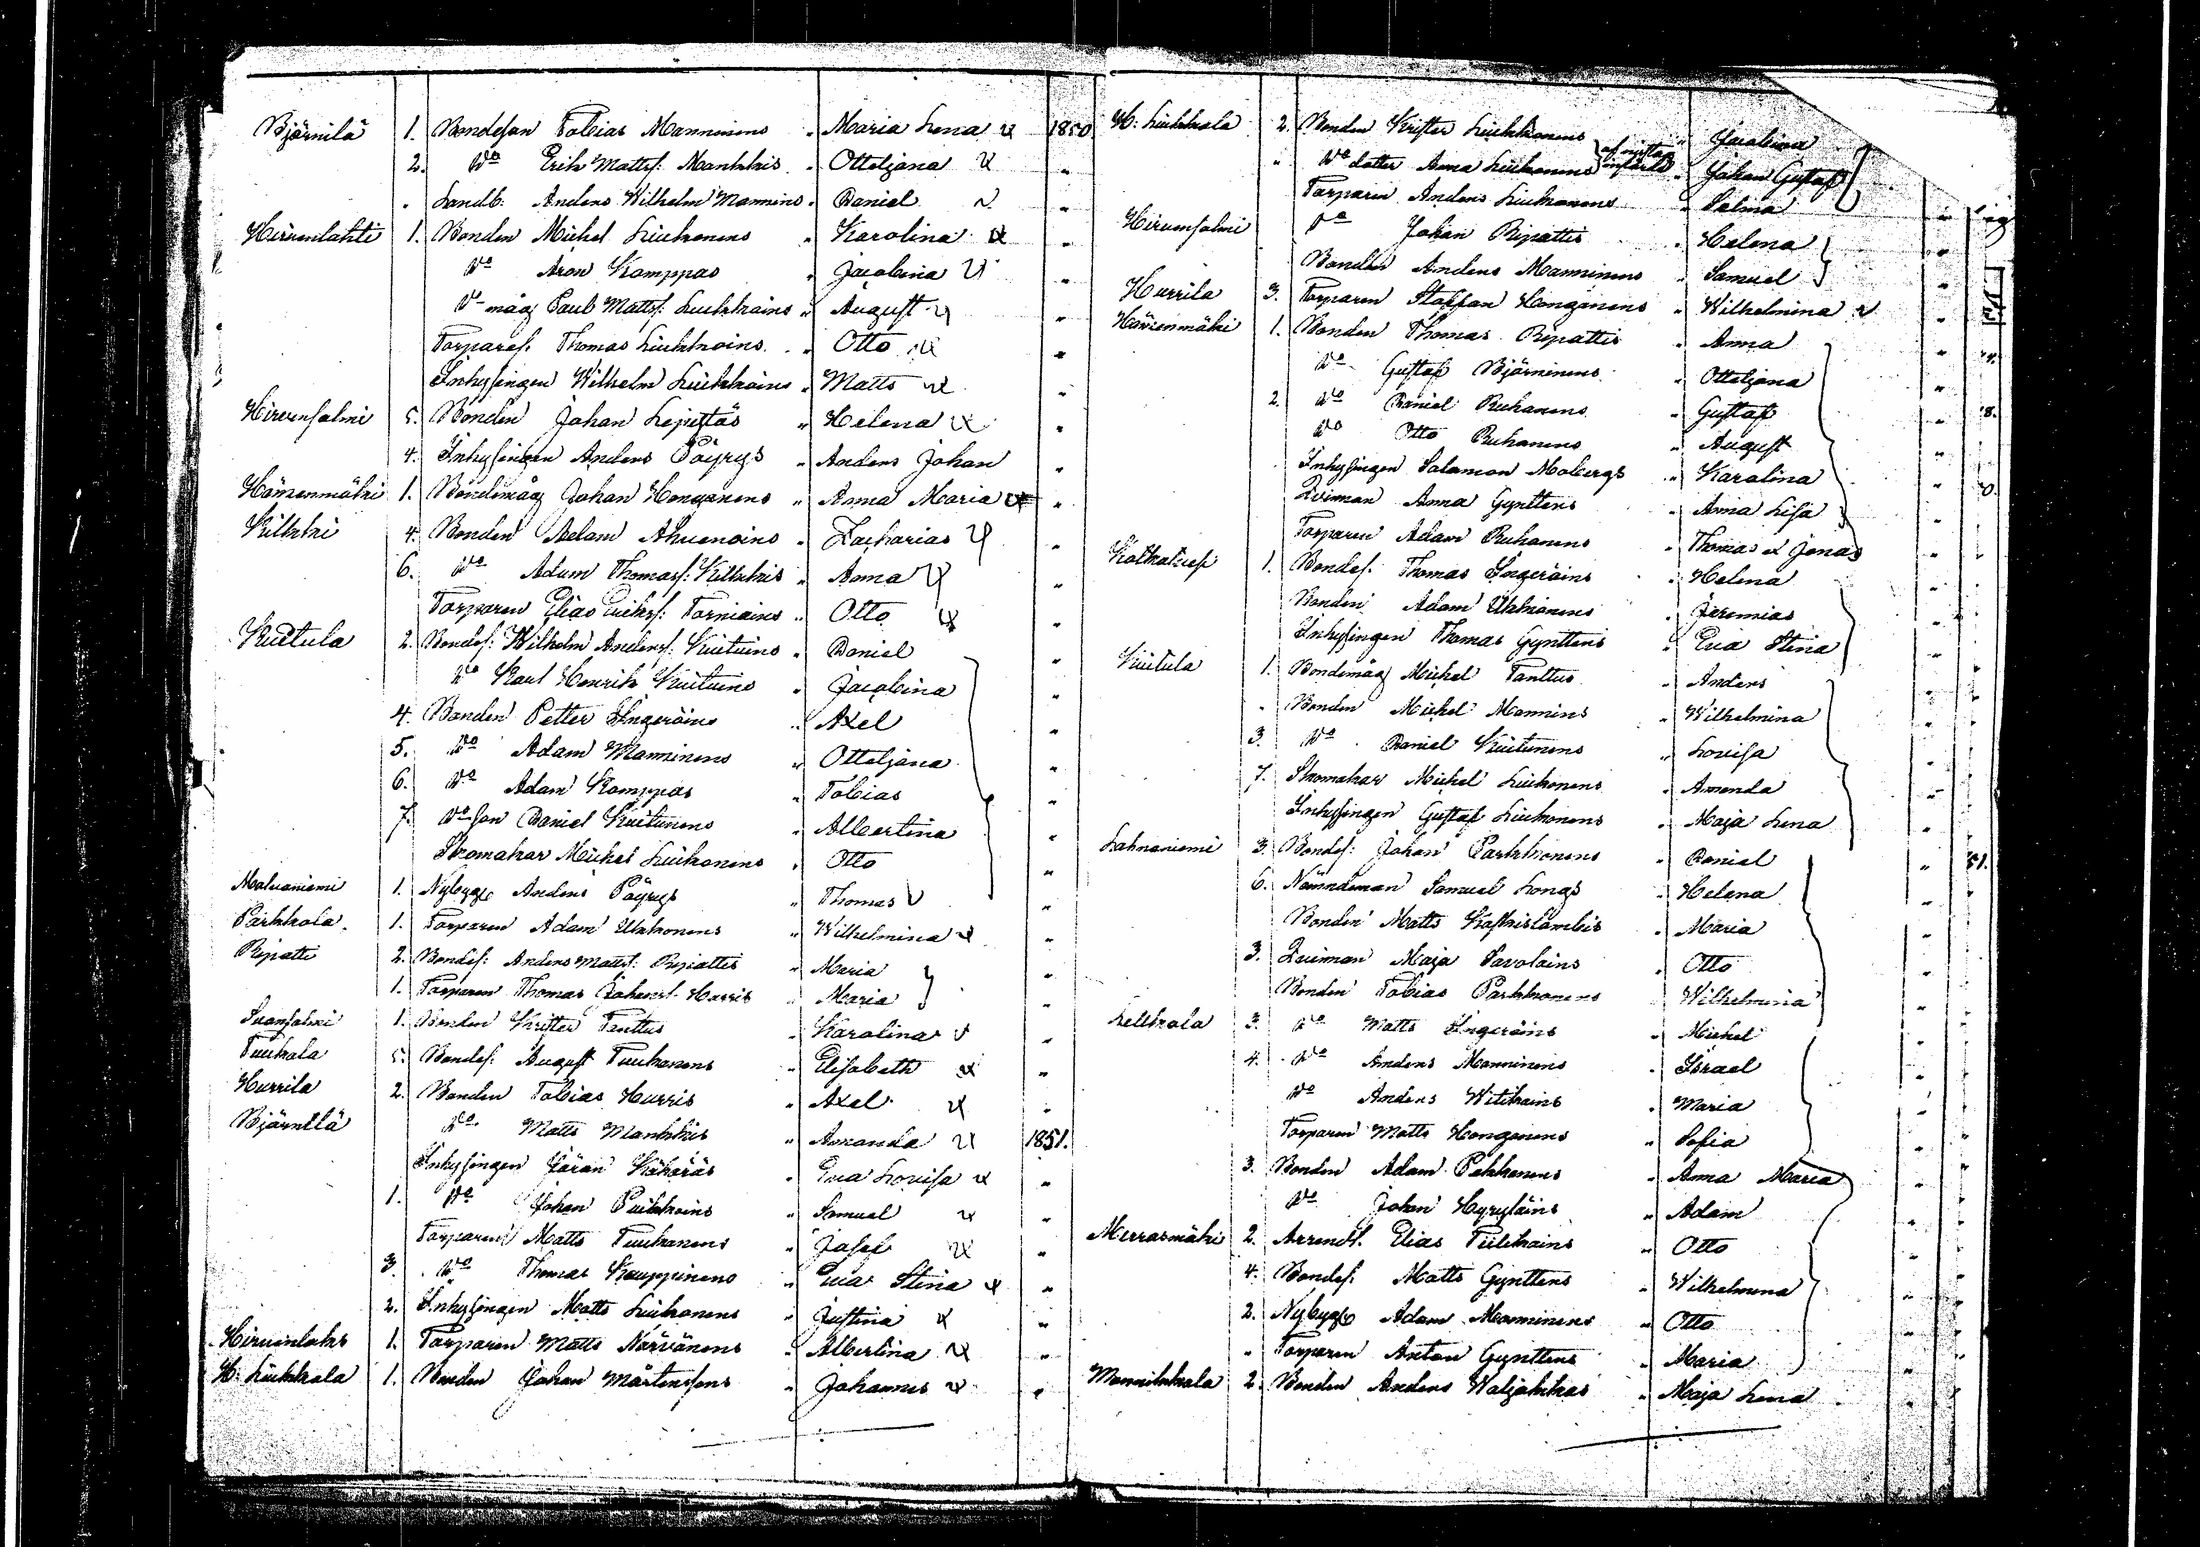 Björnilä 1. Bondeson Tobias Manninens " Maria Lena 1850
2. Do Erik Mattss: Mankkis " Otteljana "
" Landb. Anders Wilhelm Mannins " Daniel "
Hirvenlahti 1. Bonden Michel Liukonens " Karolina "
Do Aron Komppas " Jacobina "
Do måg Paul Mattss: Liukkoins " August "
Torpares. Thomas Liukkoins " Otto "
Inhysingen Wilhelm Liukkoins " Matts "
Hirvensalmi 5. Bonden Johan Lepistös " Helena "
4. Inhysingen Anders Pöyrys " Anders Johan "
Hämenmäki 1. Bondemåg Johan Hongonens " Anna Maria "
Kilkki 4. Bonden Adam Ahvenains " Zacharias "
6. Do Adam Thomass: Kilkkis " Anna "
Torparen Elias Erikss: Torniains " Otto "
Kuitula 2. Bondes: Wilhelm Anderss: Kuituins " Daniel "
Do Karl Henrik Kuituins " Jacobina "
4. Bonden Petter Ingeröins " Axel "
5. Do Adam Manninens " Otteljana "
6. Do Adam Komppas " Tobias "
7. Do son Daniel Kuitunens " Albertina "
Skomakar Michel Liukonens " Otto "
Malvaniemi 1. Nybygg Anders Pöyrys " Thomas "
Parkkola. 1. Torparen Adam Ukkonens " Wilhelmina "
Ripatti 2. Bondes: Anders Mattss: Ripattis " Maria "
1. Torparen Thomas Johanss. Hurris " Maria "
Suonsalmi 1. Bonden Krister Tanttus " Karolina "
Tuukala 5. Bondes: August Tuukanens " Elisabeth "
Hurrila 2. Bonden Tobias Hurris " Axel "
Björnilä Do Matts Mankkis " Amanda 1851.
Inhysingen Göran Kähäräs " Eva Lovisa "
1. Do Johan Puikkoins " Samuel "
Torparen Matts Tuukanens " Josef "
3. Do Thomas Kauppinens " Eva Stina "
2. Inhysingen Matts Liukonens " Justina "
Hirvenlaks 1. Torparen Matts Närvänens " Albertina "
H: Liukkala 1. Bonden Johan Mårtenssons " Johannes "
H: Liukkala 2. Bonden Krister Liukkonens " Jacobina
" Do dotter Anna Liukonens " Johan Gustaf
Torparen Anders Liukonens " Selma "
Hirvensalmi Do Johan Ripattis " Helena "
Bonden Anders Manninens " Samuel "
Hurrila 3. Torparen Staffan Hongonens " Wilhelmina "
Hämenmäki 1. Bonden Thomas Ripattis " Anna "
Do Gustaf Björninens " Otteljana "
2. Do Daniel Ruhanens " Gustaf "
Do Otto Ruhanens " August "
Inhysingen Salomon Mobergs " Karolina "
Qvinnan Anna Gynttens " Anna Lisa "
Torparen Adam Ruhanens " Thomas et Jonas "
1. Bondes. Thomas Ingeröins " Helena "
Bonden Adam Ukkonens " Jeremias "
Inhysingen Thomas Gynttens " Eva Stina "
Kuitula 1. Bondemåg Michel Tanttus " Anders "
" Bonden Michel Mannins " Wilhelmina "
3. Do Daniel Kuitunens " Lovisa "
7. Skomakar Michel Liukonens " Amanda "
Inhysingen Gustaf Liukonens " Maja Lena "
Lahnaniemi 3. Bondes: Johan Parkkonens " Daniel "
6. Nämndeman Samuel Longs " Helena "
Bonden Matts " Maria "
3. Qvinnan Maja Savolains " Otto "
Bonden Tobias Parkkonens " Wilhelmina "
Lelkola 3. Do Matts Ingeröins " Michel "
4. Do Anders Manninens " Israel "
Do Anders Witikains " Maria "
Torparen Matts Hongonens " Sofia "
3. Bonden Adam Pekkanens " Anna Maria "
Do Johan Hyryläins " Adam "
Merrasmäki 2. Arrendt. Elias Tulikains " Otto "
4. Bondes. Matts Gynttens " Wilhelmina "
2. Nybygg Adam Manninens " Otto "
" Torparen Anton Gynttens " Maria "
Mannikkala 2. Bonden Anders Waljakkas " Maja Lena "